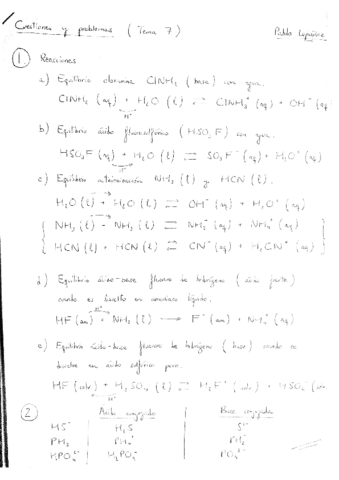 Cuestiones y problemas (Tema 7)
Pablo
1. Reacciones
a) Equilibrio cloramina ClNH₂ (base) con agua.
ClNH₂ (aq) + H₂O (l) ⇌ ClNH₃⁺ (aq) + OH⁻ (aq)
b) Equilibrio ácido fluorosulfónico (HSO₃F) con agua.
HSO₃F (aq) + H₂O (l) ⇌ SO₃F⁻ (aq) + H₃O⁺ (aq)
c) Equilibrio autoionización NH₃ (l) y HCN (l).
H₂O (l) + H₂O (l) ⇌ OH⁻ (aq) + H₃O⁺ (aq)
NH₃ (l) + NH₃ (l) ⇌ NH₂⁻ (aq) + NH₄⁺ (aq)
HCN (l) + HCN (l) ⇌ CN⁻ (aq) + H₂CN⁺ (aq)
d) Equilibrio ácido-base fluoruro de hidrógeno (ácido fuerte)
cuando es disuelto en amoníaco líquido.
HF (am) + NH₃ (l) ⟶ F⁻ (am) + NH₄⁺ (aq)
e) Equilibrio ácido-base fluoruro de hidrógeno (base) cuando se
disuelve en ácido sulfúrico puro.
HF (sulf) + H₂SO₄ (l) ⇌ H₂F⁺ (sulf) + HSO₄⁻
2. Ácido conjugado Base conjugada
HS⁻ H₂S S²⁻
PH₃ PH₄⁺ PH₂⁻
HPO₄²⁻ H₂PO₄⁻ PO₄³⁻